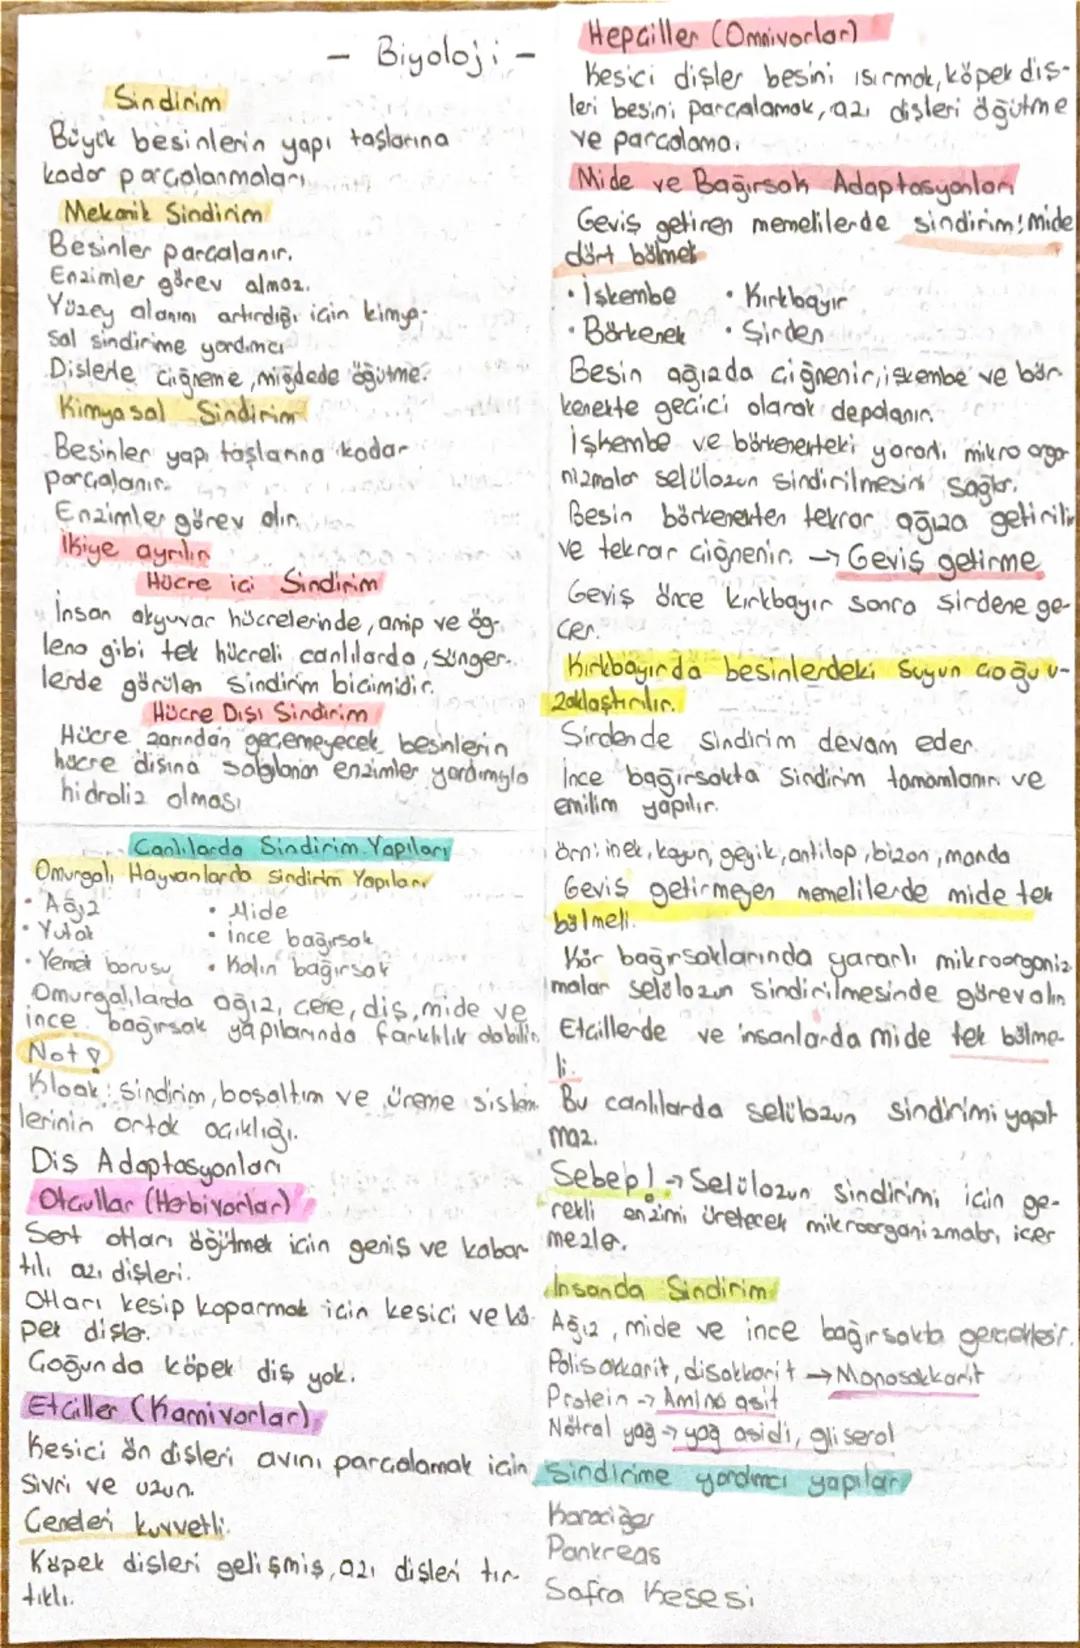 - Biyoloji -
Sindirim
Büyük besinlerin yapı taşlarına
kadar parçalanmaları
Mekanik Sindirim
Besinler parçalanır.
Enzimler görev almaz.
Yüzey alanını artırdığı için kimya-
sal sindirime yardımcı
Dişlerle çiğneme, midede öğütme.
Kimyasal Sindirim
Besinler yapı taşlarına kadar
parçalanır.
Enzimler görev alır.
İkiye ayrılır
Hücre içi Sindirim
İnsan akyuvar hücrelerinde, amip ve ög-
lena gibi tek hücreli canlılarda, sünger-
lerde görülen sindirim biçimidir.
Hücre Dışı Sindirim
Hücre zarından geçemeyecek besinlerin
hücre dışına salgılanan enzimler yardımıyla
hidroliz olması
Canlılarda Sindirim Yapıları
Omurgalı Hayvanlarda sindirim Yapıları
• Ağız • Mide
• Yutak • ince bağırsak
• Yemek borusu • Kalın bağırsak
Omurgalılarda ağız, çene, diş, mide ve
ince bağırsak yapılarında farklılık olabilir.
Not!
Kloak: sindirim, boşaltım ve üreme sistem
lerinin ortak açıklığı.
Diş Adaptasyonları
Otçullar (Herbivorlar)
Sert otları öğütmek için geniş ve kabar-
tılı azı dişleri.
Otları kesip koparmak için kesici ve kö-
pek dişler.
Çoğunda köpek diş yok.
Etçiller (Karnivorlar)
Kesici ön dişleri avını parçalamak için
sivri ve uzun.
Çeneleri kuvvetli.
Köpek dişleri gelişmiş, azı dişleri tır-
tıklı.
Hepçiller (Omnivorlar)
Kesici dişler besini ısırmak, köpek diş-
leri besini parçalamak, azı dişleri öğütme
ve parçalama.
Mide ve Bağırsak Adaptasyonları
Geviş getiren memelilerde sindirim: mide
dört bölmeli
• İşkembe • Kırkbayır
• Börkenek • Şirden
Besin ağızda çiğnenir, işkembe ve bör-
kenekte geçici olarak depolanır.
İşkembe ve börkenekteki yararlı mikro orga
nizmalar selülozun sindirilmesini sağlar.
Besin börkenekten tekrar ağıza getirilir
ve tekrar çiğnenir. → Geviş getirme
Geviş önce kırkbayır sonra şirdene ge-
çer.
Kırkbayırda besinlerdeki suyun çoğu u-
zaklaştırılır.
Şirdende sindirim devam eder.
İnce bağırsakta sindirim tamamlanır ve
emilim yapılır.
örn: inek, koyun, geyik, antilop, bizon, manda
Geviş getirmeyen memelilerde mide tek
bölmeli.
Kör bağırsaklarında yararlı mikroorganiz
malar selülozun sindirilmesinde görev alır
Etçillerde ve insanlarda mide tek bölme-
li.
Bu canlılarda selülozun sindirimi yapıl
maz.
Sebep! → Selülozun sindirimi için ge-
rekli enzimi üretecek mikroorganizmaları içer
mezler.
İnsanda Sindirim
Ağız, mide ve ince bağırsakta gerçekleşir.
Polisakkarit, disakkarit → Monosakkarit
Protein → Amino asit
Nötral yağ → yağ asidi, gliserol
Sindirime yardımcı yapılar
Karaciğer
Pankreas
Safra Kesesi